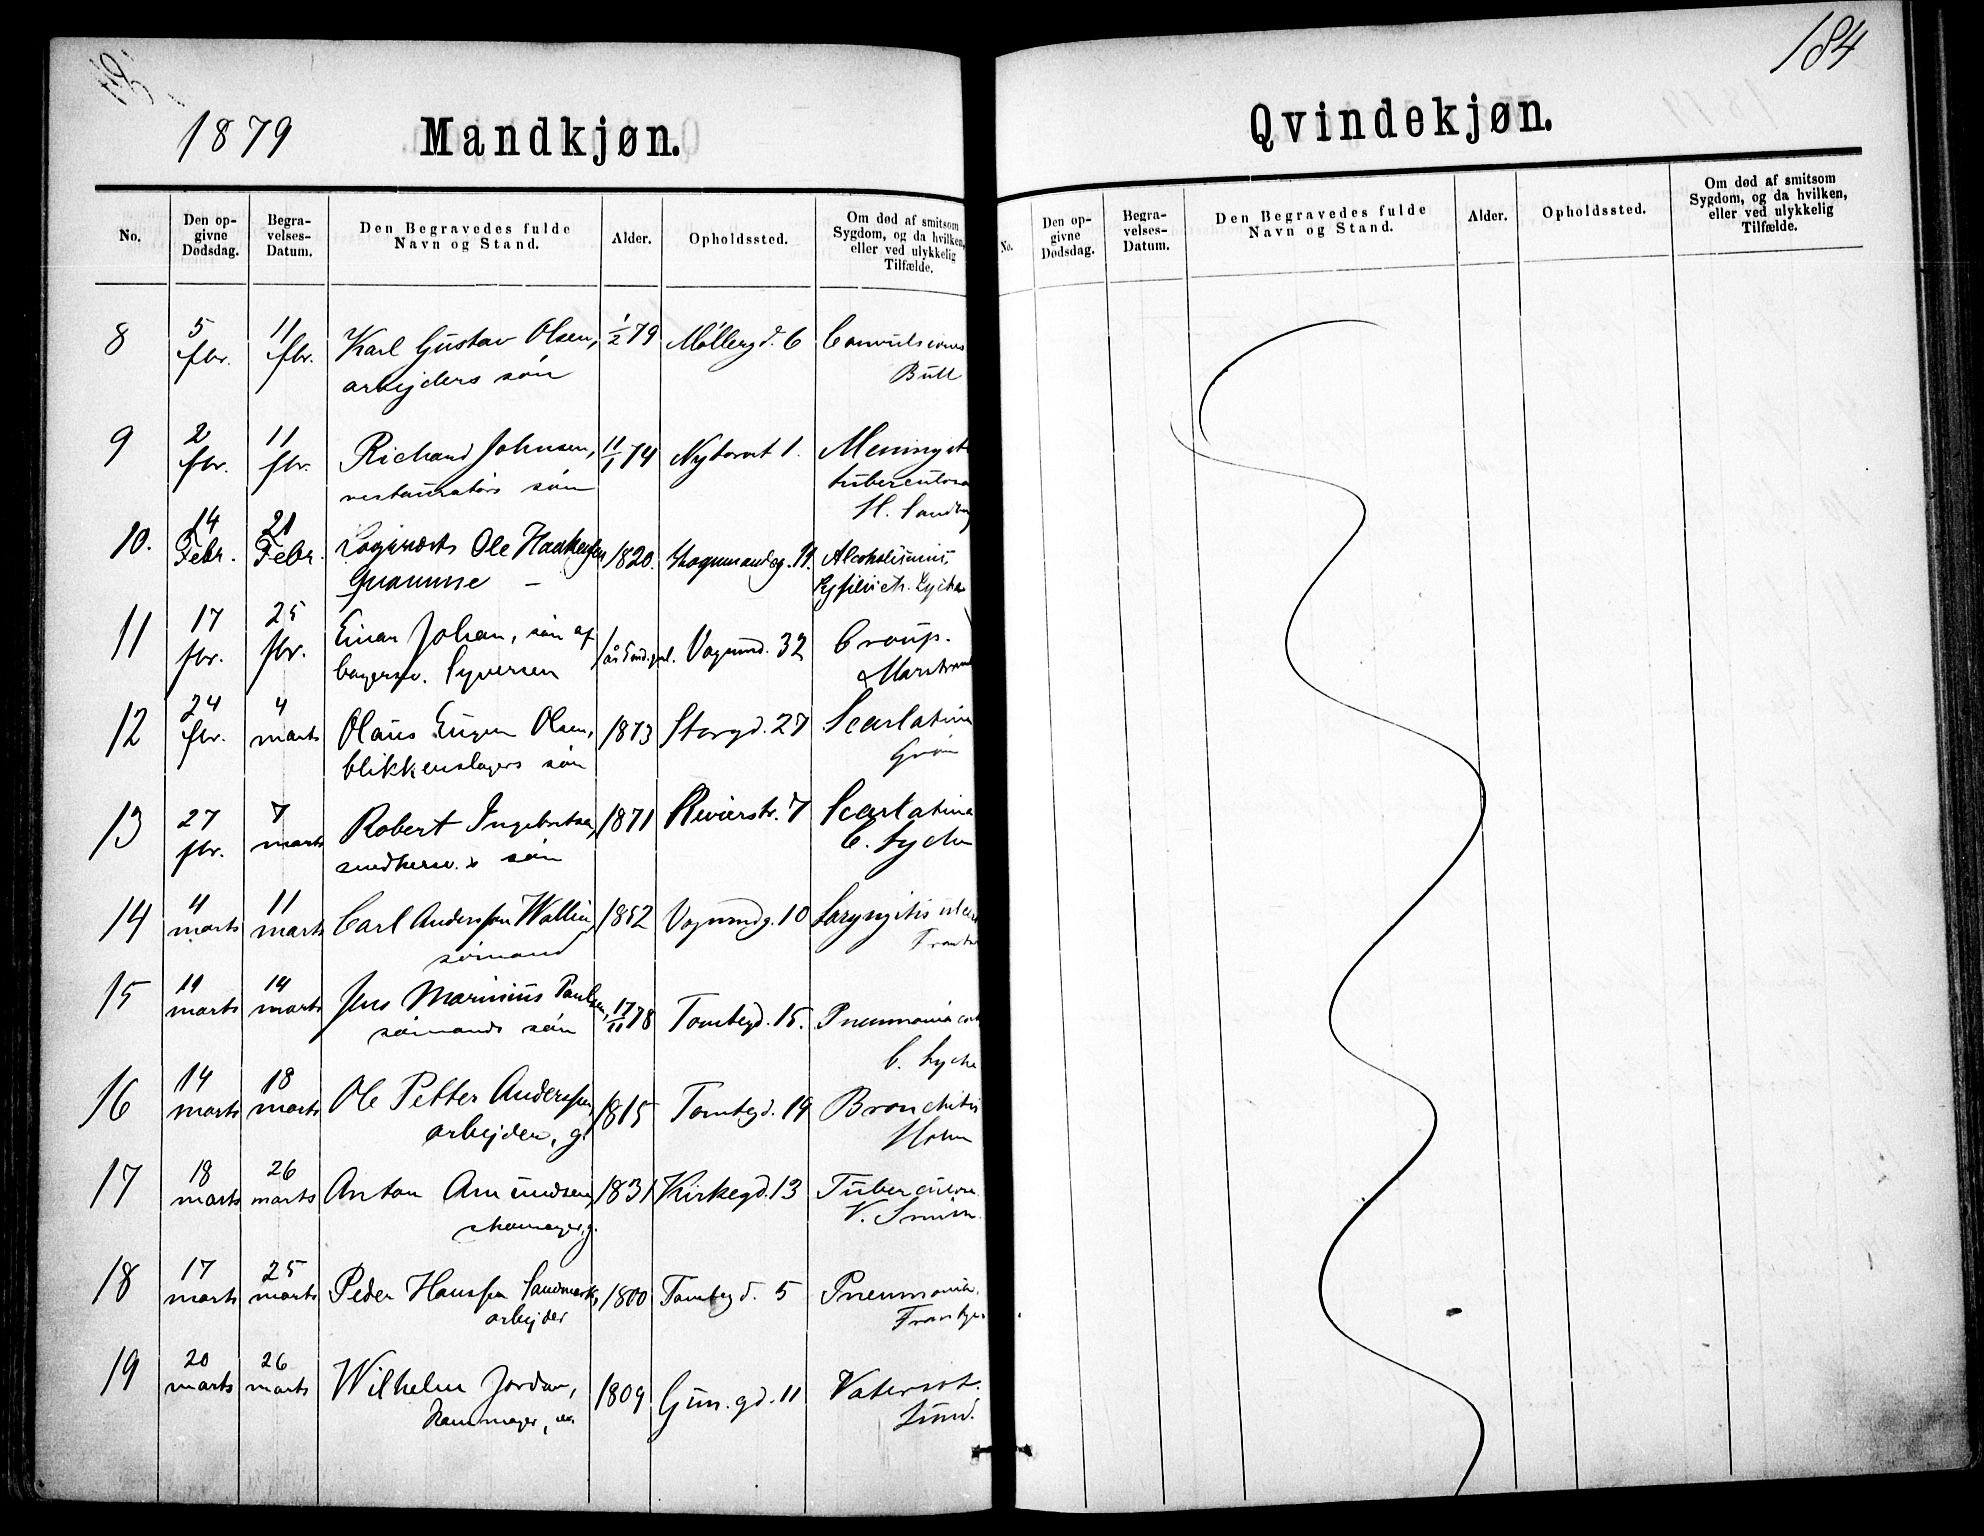 184
1879 Mandkjøn.
No. Den opgivne Dødsdag. Begravelses-Datum. Den Begravedes fulde Navn og Stand. Alder. Opholdssted. Om død af smitsom Sygdom, og da hvilken, eller ved ulykkelig Tilfælde.
8 5 fbr. 11 fbr. Karl Gustav Olsen, 1/2 79 Møllergd. 6 Convulsiones
arbejders søn Bull
9 2 fbr. 11 fbr. Richard Johnsen, 11/1 74 Nytorvet 1. Meningit
restauratørs søn tuberculosa
H.
10. 14 Febr. 21 Febr. Logiværts Ole Haakensen 1820. Vognmandsg. 11. Alcoholismus,
Qvamme –
11 17 fbr. 25 fbr. Einar Johan, søn af Vognmd. 32 Croup.
bagersv. Syversen
12 24 fbr. 4 marts Olaus Eugen Olsen, 1873 Storgd. 27 Scarlatina
blikkenslagers søn Grøn
13 27 fbr. 7 marts Robert Ingebretsen, 1871 Revierstr. 7 Scarlatina
snedkersv.s søn C. Lyche
14 4 marts 11 marts Carl Anderssen Wallin, 1852 Vognmdg. 10 Laryngitis
sømand
15 11 marts 14 marts Jens Marinius Paulsen, 17/11 78 Tomtegd. 15. Pneumonia
sømands søn C. Lyche
16 14 marts 18 marts Ole Petter Anderssen, 1815 Tomtegd. 19 Bronchitis
arbejder, g. Holm
17 18 marts 26 marts Anton Amundsen, 1831 Kirkegd. 13 Tuberculose
skomager, g. V.
18 17 marts 25 marts Peder Hanssen Sandmark, 1800 Tomtegd. 5 Pneumonia.
arbejder
19 20 marts 26 marts Wilhelm Jordan, 1809 Grün. gd. 11 Vatersot.
kammager, Lund.
Qvindekjøn.
No. Den opgivne Dødsdag. Begravelses-Datum. Den Begravedes fulde Navn og Stand. Alder. Opholdssted. Om død af smitsom Sygdom, og da hvilken, eller ved ulykkelig Tilfælde.